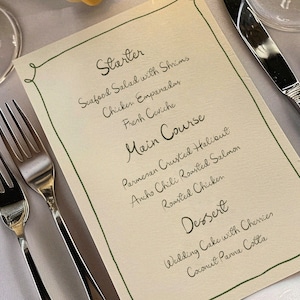 Starter
Seafood Salad with Shrims
Chicken Empanadas
Fresh Ceviche
Main Course
Parmesan Crusted Halibout
Ancho Chili Roasted Salmon
Roasted Chicken
Dessert
Wedding Cake with Cherries
Coconut Panna Cotta